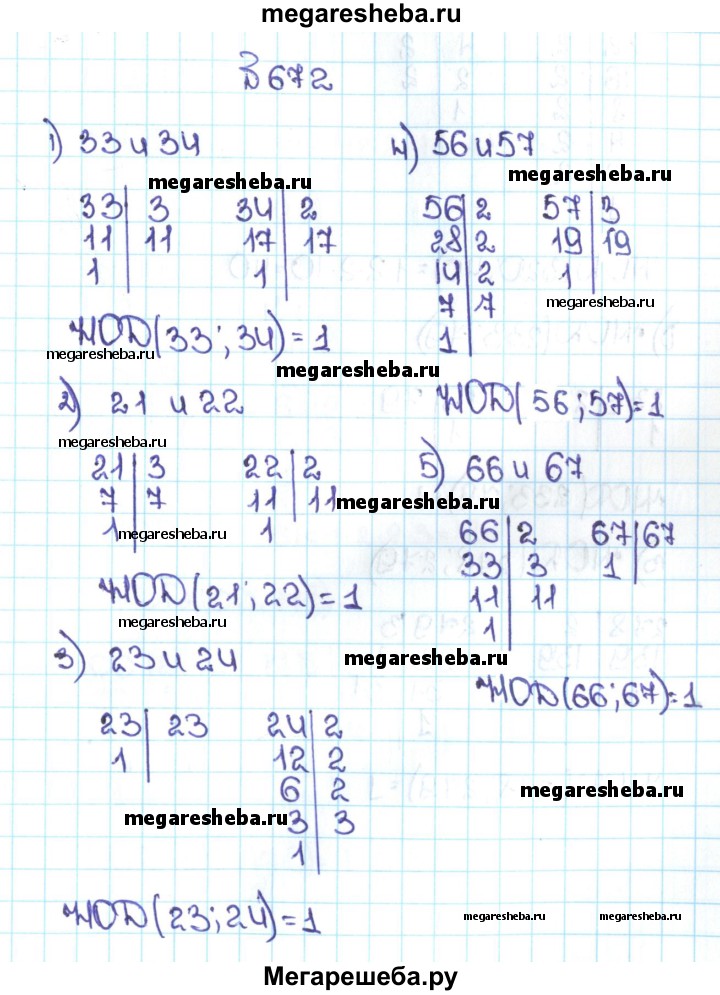 megaresheba.ru
В 672
1) 33 и 34
megaresheba.ru
33 | 3
11 | 11
1
34 | 2
17 | 17
1
НОД(33; 34) = 1
megaresheba.ru
megaresheba.ru
2) 21 и 22
megaresheba.ru
21 | 3
7 | 7
1
megaresheba.ru
22 | 2
11 | 11
1
megaresheba.ru
НОД(21; 22) = 1
megaresheba.ru
3) 23 и 24
megaresheba.ru
23 | 23
1
24 | 2
12 | 2
6 | 2
3 | 3
1
megaresheba.ru
НОД(23; 24) = 1
4) 56 и 57
megaresheba.ru
56 | 2
28 | 2
14 | 2
7 | 7
1
57 | 3
19 | 19
1
megaresheba.ru
НОД(56; 57) = 1
5) 66 и 67
66 | 2
33 | 3
11 | 11
1
67 | 67
1
НОД(66; 67) = 1
megaresheba.ru
megaresheba.ru
megaresheba.ru
Мегарешеба.ру